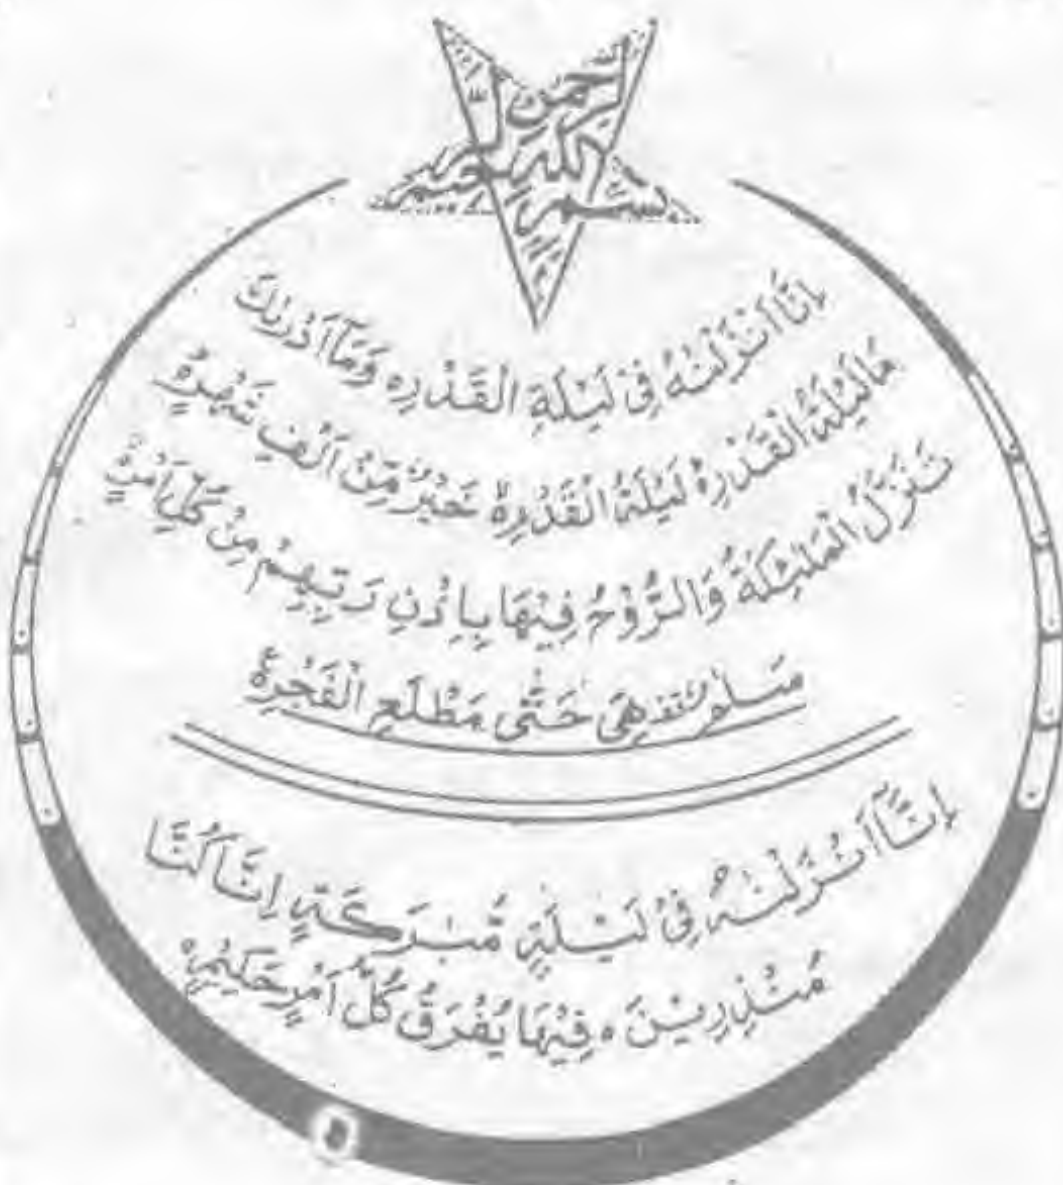 بسم الله الرحمن الرحيم
اِنَّا اَنْزَلْنٰهُ فِیْ لَیْلَةِ الْقَدْرِ ہ وَمَاۤ اَدْرٰىكَ
مَا لَیْلَةُ الْقَدْرِ ہ لَیْلَةُ الْقَدْرِ ہ خَیْرٌ مِّنْ اَلْفِ شَهْرٍ ہ
تَنَزَّلُ الْمَلٰٓئِكَةُ وَالرُّوْحُ فِیْهَا بِاِذْنِ رَبِّهِمْ مِنْ كُلِّ اَمْرٍ ہ
سَلٰمٌ قف هِیَ حَتّٰى مَطْلَعِ الْفَجْرِ ہ ع
اِنَّاۤ اَنْزَلْنٰهُ فِیْ لَیْلَةٍ مُّبٰرَكَةٍ اِنَّا كُنَّا
مُنْذِرِیْنَ ہ فِیْهَا یُفْرَقُ كُلُّ اَمْرٍ حَكِیْمٍ ہ